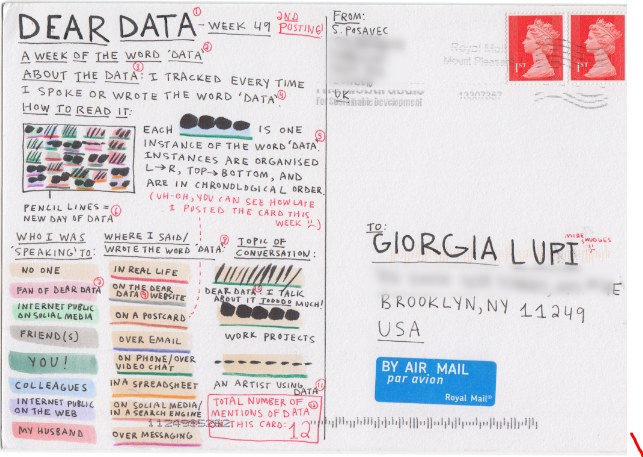 DEAR DATA ① - WEEK 49 2ND POSTING!
A WEEK OF THE WORD 'DATA' ②
ABOUT THE DATA: ③ I TRACKED EVERY TIME
I SPOKE OR WROTE THE WORD 'DATA' ④
HOW TO READ IT:
EACH IS ONE ⑤
INSTANCE OF THE WORD 'DATA.
INSTANCES ARE ORGANISED
L→R, TOP→BOTTOM, AND
ARE IN CHRONOLOGICAL ORDER.
(UH-OH, YOU CAN SEE HOW LATE
I POSTED THE CARD THIS
WEEK
PENCIL LINES = ⑥
NEW DAY OF DATA
WHO I WAS
'SPEAKING' TO:
NO ONE
FAN OF DEAR DATA
INTERNET PUBLIC
ON SOCIAL MEDIA
FRIEND(S)
YOU!
COLLEAGUES
INTERNET PUBLIC
ON THE WEB
MY HUSBAND
WHERE I SAID/
WROTE THE WORD 'DATA'
IN REAL LIFE
ON THE DEAR
DATA WEBSITE
ON A POSTCARD
OVER EMAIL
ON PHONE/OVER
VIDEO CHAT
IN A SPREADSHEET
ON SOCIAL MEDIA/
IN A SEARCH ENGINE
OVER MESSAGING
TOPIC OF
CONVERSATION:
DEAR DATA I TALK
ABOUT IT TOOOOO MUCH!
WORK PROJECTS
AN ARTIST USING DATA
TOTAL NUMBER OF
MENTIONS OF DATA
ON THIS CARD: 12
FROM:
S. POSAVEC
UK
Royal Mail
Mount Pleasant
For Sustainable Development
1ST
1ST
TO:
GIORGIA LUPI
MORE SMUDGES
BROOKLYN, NY 11249
USA
BY AIR MAIL
par avion
Royal Mail®